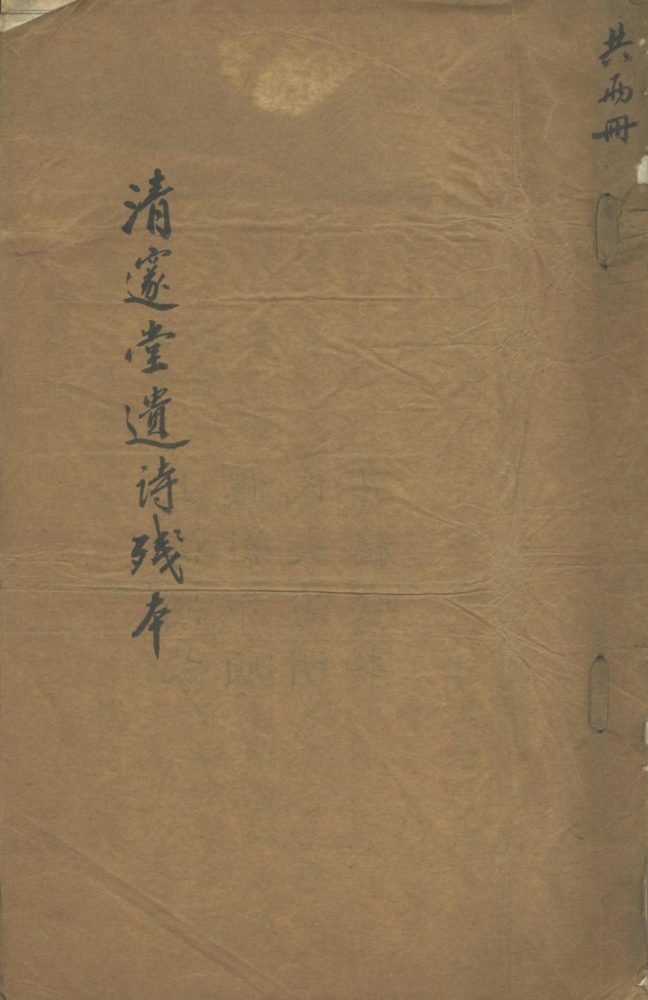 共兩冊
清邃堂遺诗残本